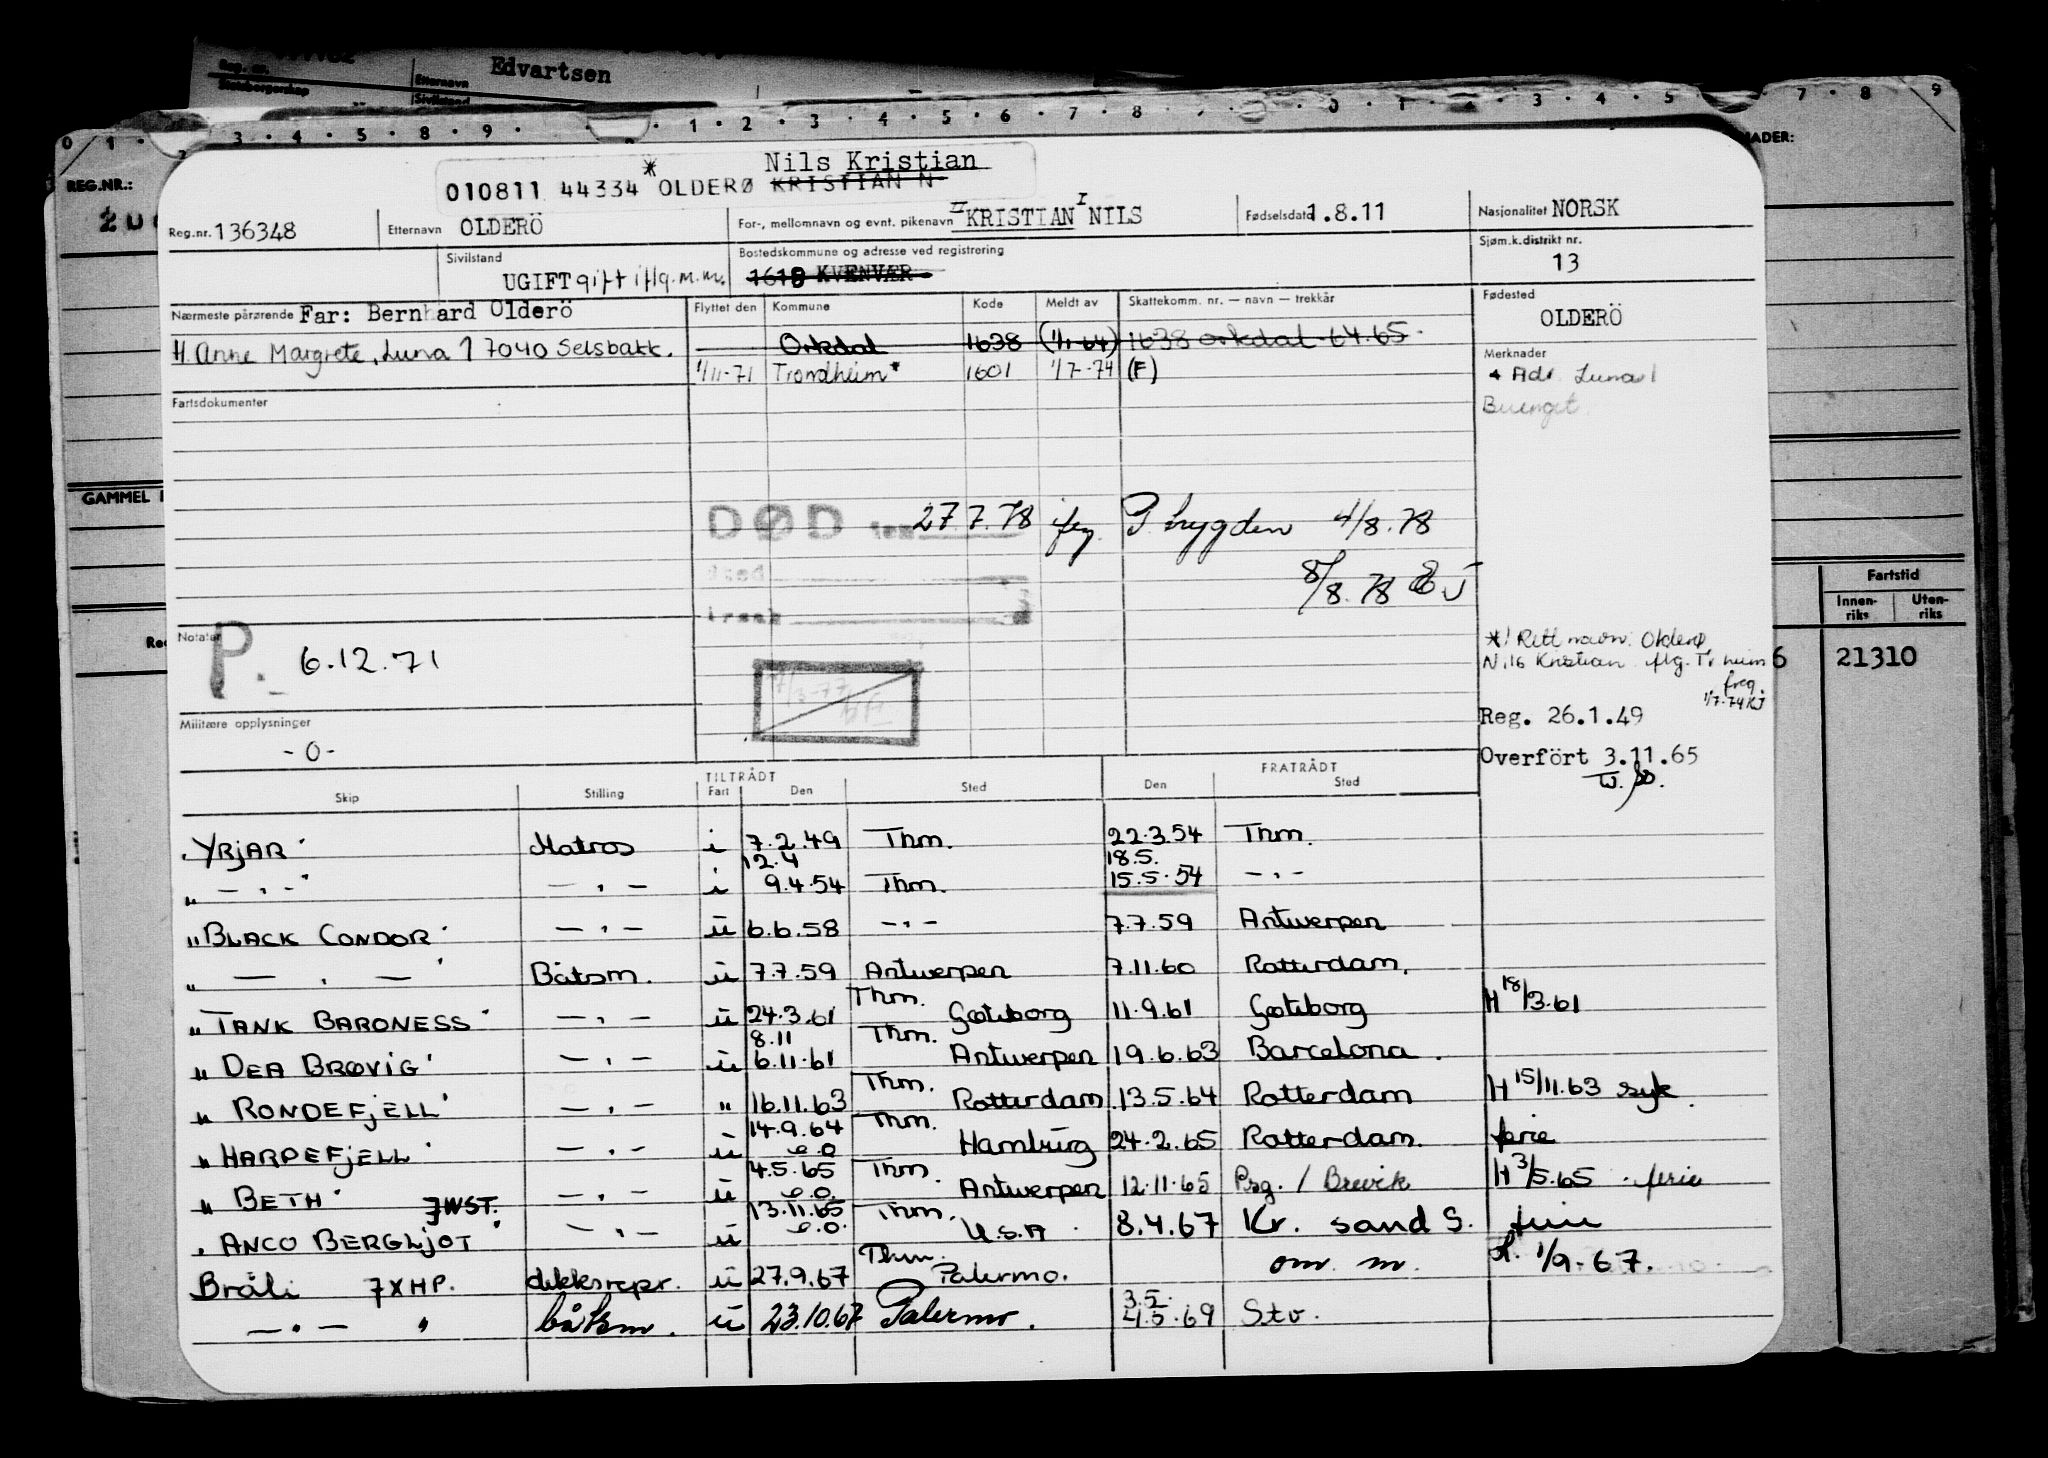 Edvartsen
Reg. nr.
Etternavn
Statsborgerskap
Sivilstand
0 1 2 3 4 5 8 9 1 2 3 4 5 6 7 8 0 1 2 3 4 5 7 8 9
REG.NR.:
Nils Kristian
010811 44334 * OLDERØ KRISTIAN N
Reg.nr. 136348 Etternavn OLDERÖ For-, mellomnavn og evnt. pikenavn II KRISTIAN I NILS Fødselsdato 1.8.11 Nasjonalitet NORSK
Sivilstand UGIFT gift iflg. m.m. Bostedskommune og adresse ved registrering KVENVÆR Sjøm.k.distrikt nr. 13
Nærmeste pårørende Far: Bernhard Olderö Flyttet den Kommune Kode Meldt av Skattekomm. nr. — navn — trekkår Fødested OLDERÖ
H. Anne Margrete, Luna 1 7040 Selsbakk. Orkdal 1638 (1/1-64) 1638 Orkdal 64.65 Merknader
1/11-71 Trondheim* 1601 1/7-74 (F) * Adr. Luna 1
Fartsdokumenter
GAMMEL
DØD 27 7.78 iflg. P. trygden 4/8.78
sted
8/8.78
Fartstid
Innen-riks Uten-riks
Notater P. 6.12.71
*! Rett navn: Olderø,
Nils Kristian iflg. Tr.heim
freg.
1/7-74 KJ
21310
Reg. 26.1.49
Militære opplysninger
-0-
Overfört 3.11.65
TILTRÅDT FRATRÅDT
Skip Stilling Fart Den Sted Den Sted
YRJAR Matros i 7.2.49 Thm. 22.3.54 Thm.
12.4 18.5.
" — " — — " — i 9.4.54 Thm. 15.5.54 — " —
" BLACK CONDOR — " — u 6.6.58 — " — 7.7.59 Antwerpen
" — " — Båtsm. u 7.7.59 Antwerpen 7.11.60 Rotterdam.
" TANK BARONESS — " — u 24.3.61 Thm. Gøteborg 11.9.61 Gøteborg H 18/3.61
8.11
" DEA BRØVIG — " — u 6.11.61 Thm. Antwerpen 19.6.63 Barcelona.
" RONDEFJELL — " — " 16.11.63 Thm. Rotterdam 13.5.64 Rotterdam H 15/11.63 syk.
" HARDEFJELL — " — u 14.9.64 e.o Thm. Hamburg 24.2.65 Rotterdam. ferie
" BETH — " — u 4.5.65 e.o. Thm. Antwerpen 12.11.65 Psg. / Brevik H 3/5.65 . ferie
JWST.
" ANCO BERGLJOT — " — u 13.11.65 e.o. Thm. U.S.A 8.4.67 Kr. sand S. ferie
Bråli 7XHP. dekksrepr. u 27.9.67 Thm. Palermo. om. m. H. 1/9-67.
— " — " båtsm. u 23.10.67 Palermo. 3.5. 4.5.69 Stv.